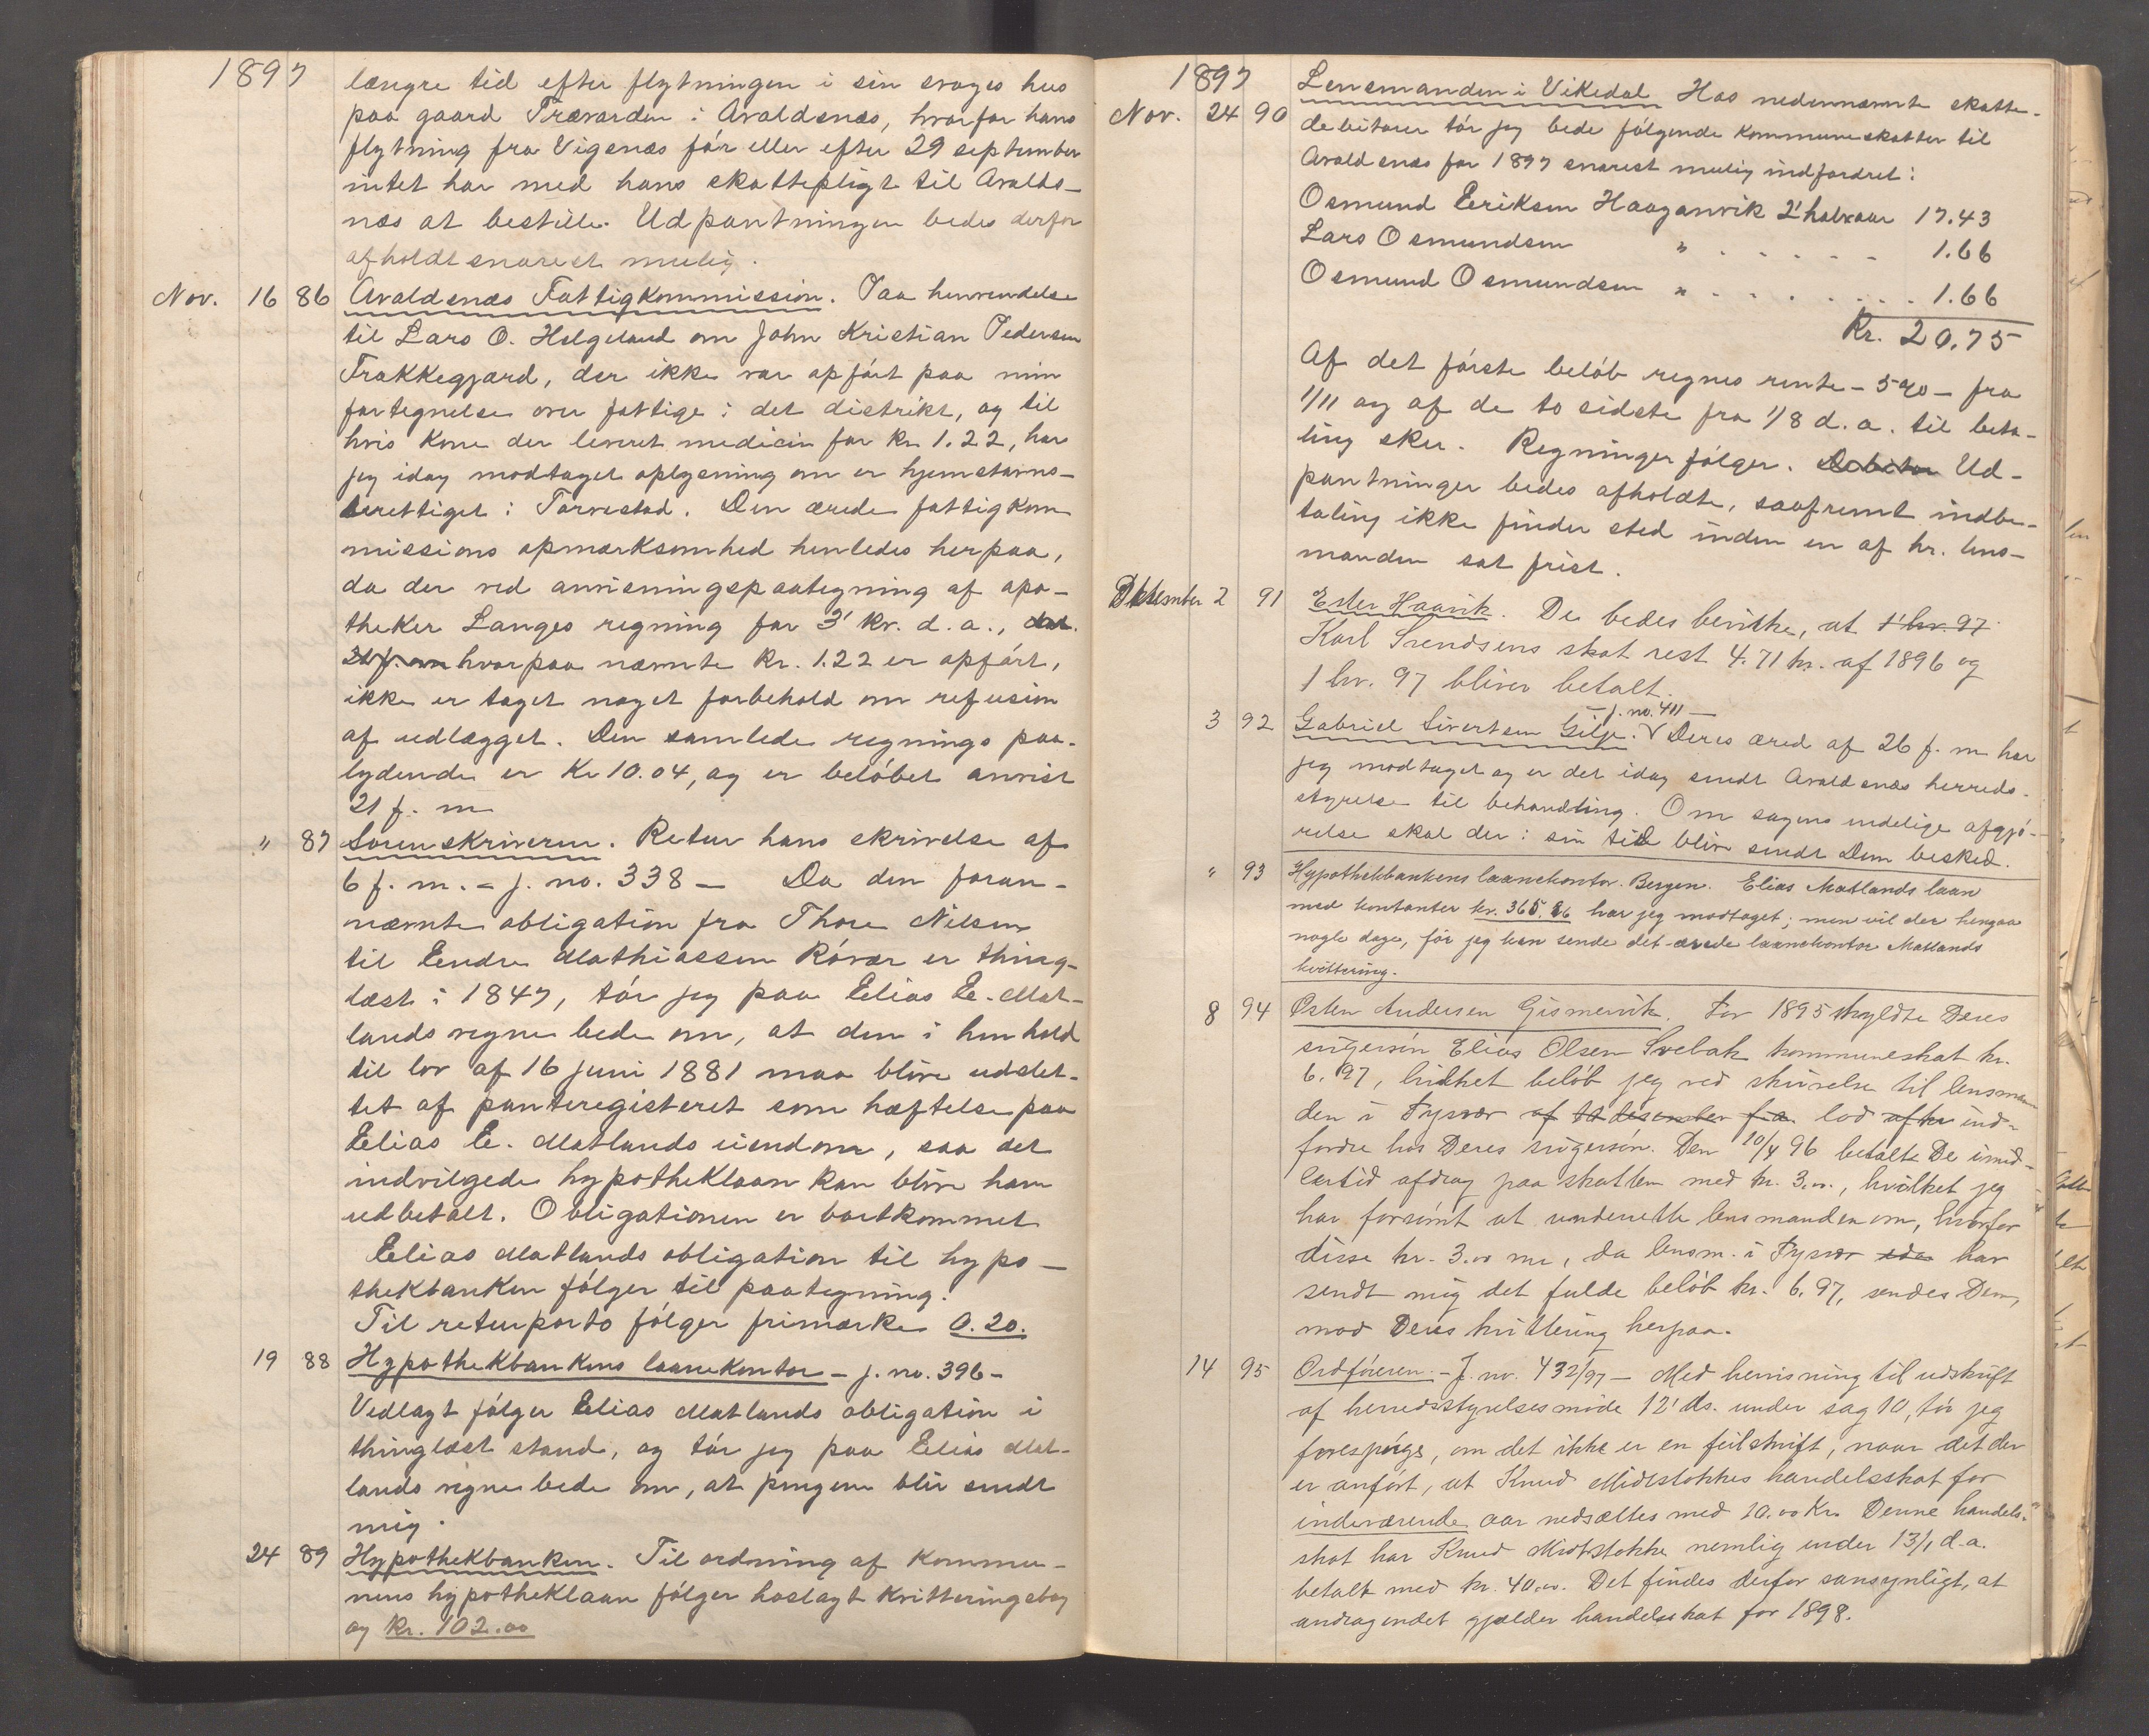 1897
længre tid efter flytningen i sin svoges hus
paa gaard Trævarden i Avaldsnæs, hvorfor hans
flytning fra Vigsnæs før eller efter 29 september
intet har med hans skattepligt til Avalds-
næs at bestille. Udpantningen bedes derfor
afholdt snarest mulig.
Nov. 16 86 Avaldsnæs Fattigkommission. Paa henvendelse
til Lars O. Helgeland om John Kristian Pedersen
Trakkegjærd, der ikke var opført paa min
fortegnelse over fattige i det distrikt, og til
hvis kone der leveret medicin for kr. 1.22, har
jeg idag modtaget oplysning om er hjemstavns-
berettiget i Torvestad. Den ærede fattigkom
missions opmærksomhed henledes herpaa,
da der ved anvisningspaategning af apo-
theker Langes regning for 3' kv. d. a.,
hvorpaa nævnte kr. 1.22 er opført,
ikke er taget noget forbehold om refusion
af udlægget. Den samlede regnings paa-
lydende er Kr 10.04, og er beløbet anvist
21 f. m
" 87 Sorenskriveren. Retur hans skrivelse af
6 f. m. - j. no. 338 - Da den foran-
nævnte obligation fra Thore Nilsen
til Endre Mathiassen Røvær er thing-
læst i 1847, tør jeg paa Elias E. Mat-
lands vegne bede om, at den i henhold
til lov af 16 juni 1881 maa blive udslet-
tet af panteregisteret som hæftelse paa
Elias E. Matlands eiendom, saa det
indvilgede hypotheklaan kan blive ham
udbetalt. Obligationen er bortkommet
Elias Matlands obligation til hypo-
thekbanken følger til paategning.
Til returporto følger frimærke 0.20.
19 88 Hypothekbankens laanekontor - j. no. 396 -
Vedlagt følger Elias Matlands obligation i
thinglæst stand, og tør jeg paa Elias Mat-
lands vegne bede om, at pengene blir sendt
mig.
24 89 Hypothekbanken. Til ordning af kommu-
nens hypotheklaan følger hoslagt kvitteringsbog
og kr. 102.00
1897
Nov. 24 90 Lensmanden i Vikedal Hos nedennævnte skatte-
debitorer tør jeg bede følgende kommuneskatter til
Avaldsnæs for 1897 snarest mulig indfordret:
Osmund Eriksen Haaganvik 2' halvaar 17.43
Lars Osmundsen " . . . . . . 1.66
Osmund Osmundsen " . . . . . . . 1.66
Kr. 20.75
Af det første beløb regnes rente - 5% - fra
1/11 og af de to sidste fra 1/8 d. a. til beta-
ling sker. Regninger følger. Debitor Ud-
pantninger bedes afholdte, saafremt indbe-
taling ikke finder sted inden en af hr. lens-
manden sat frist.
Dksember 2 91 Ester Haavik. De bedes bevirke, at 1' hv. 97
Karl Svendsens skat rest 4.71 kr. af 1896 og
1 hv. 97 bliver betalt.
- j. no. 411 -
3 92 Gabriel Sivertsen Gilje. Deres æred af 26 f. m har
jeg modtaget og er det idag sendt Avaldsnæs herreds-
styrelse til behandling. Om sagens endelige afgjø-
relse skal der i sin tid blive sendt Dem besked.
" 93 Hypothekbankens laanekontor. Bergen. Elias Matlands laan
med kontanter kr. 365.86 har jeg modtaget; men vil der hengaa
nogle dage, før jeg kan sende det ærede laanekontor Matlands
kvittering.
8 94 Østen Andersen Gismervik. For 1895 skyldte Deres
svigersøn Elias Olsen Svebak kommuneskat kr.
6.97, hvilket beløb jeg ved skrivelse til lensman
den i Tysvær af 12 desember f.a. lod afkr ind-
fordre hos Deres svigersøn. Den 20/4 96 betalte De imid-
lertid afdrag paa skatten med kr. 3.00, hvilket jeg
har forsømt at underrette lensmanden om, hvorfor
disse kr. 3.00 nu, da lensm. i Tysvær har
sendt mig det fulde beløb kr. 6.97, sendes Dem,
mod Deres kvittering herpaa.
14 95 Ordføreren. - J. no. 432/97 - Med henvisning til udskrift
af herredsstyrelsesmøde 12' ds. under sag 10, tør jeg
forespørge, om det ikke er en feilskrift, naar det der
er anført, at Knud Midtstokkes handelsskat for
indeværende aar nedsættes med 10.00 kr. Denne handels-
skat har Knud Midtstokke nemlig under 13/1 d.a.
betalt med kr. 40.00. Det findes derfor sansynligt, at
andragendet gjælder handelsskat for 1898.